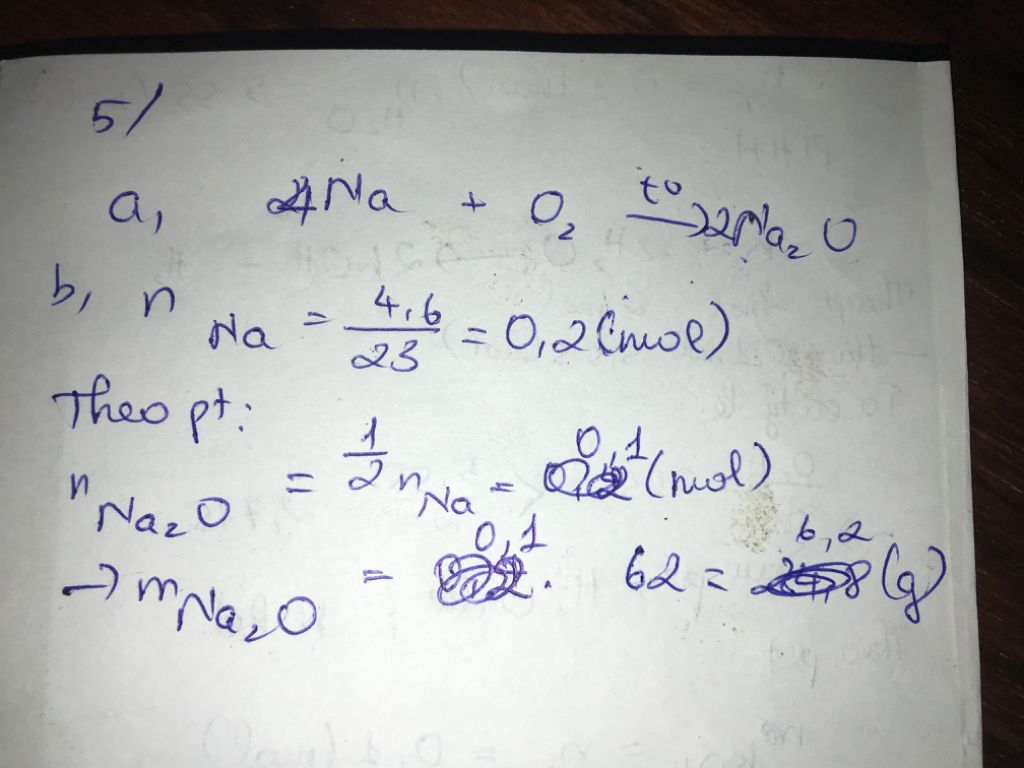 5/
a, 4Na + O₂ t° → 2Na₂O
b, n Na = 4,6/23 = 0,2 (mol)
Theo pt:
n Na₂O = 1/2 n Na = 0,1 (mol)
→ m Na₂O = 0,1 . 62 = 6,2 (g)